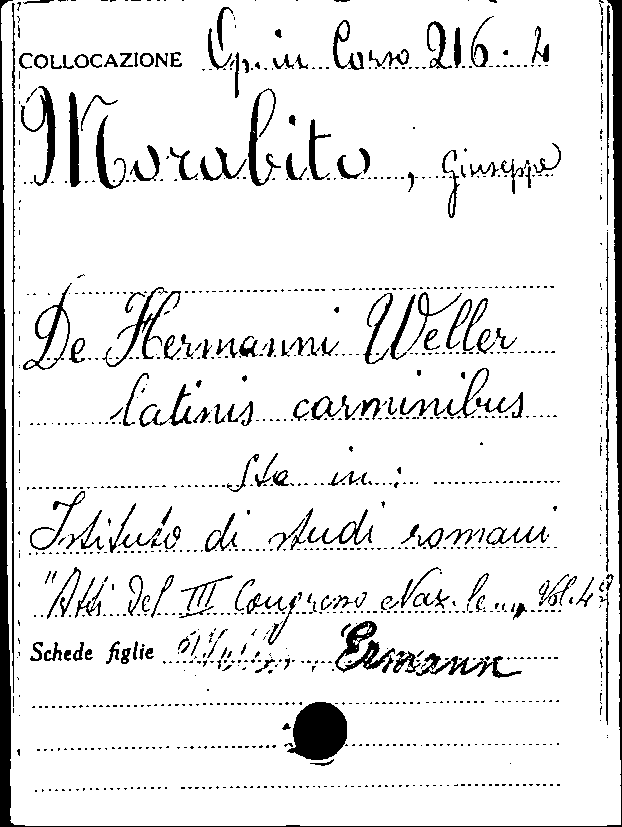 COLLOCAZIONE Op. in Corso 216. 4
Morabito, Giuseppe
De Hermanni Weller
latinis carminibus
Sta in:
Istituto di studi romani
"Atti del III Congresso Naz.le.... Vol. 4º
Schede figlie Ermann